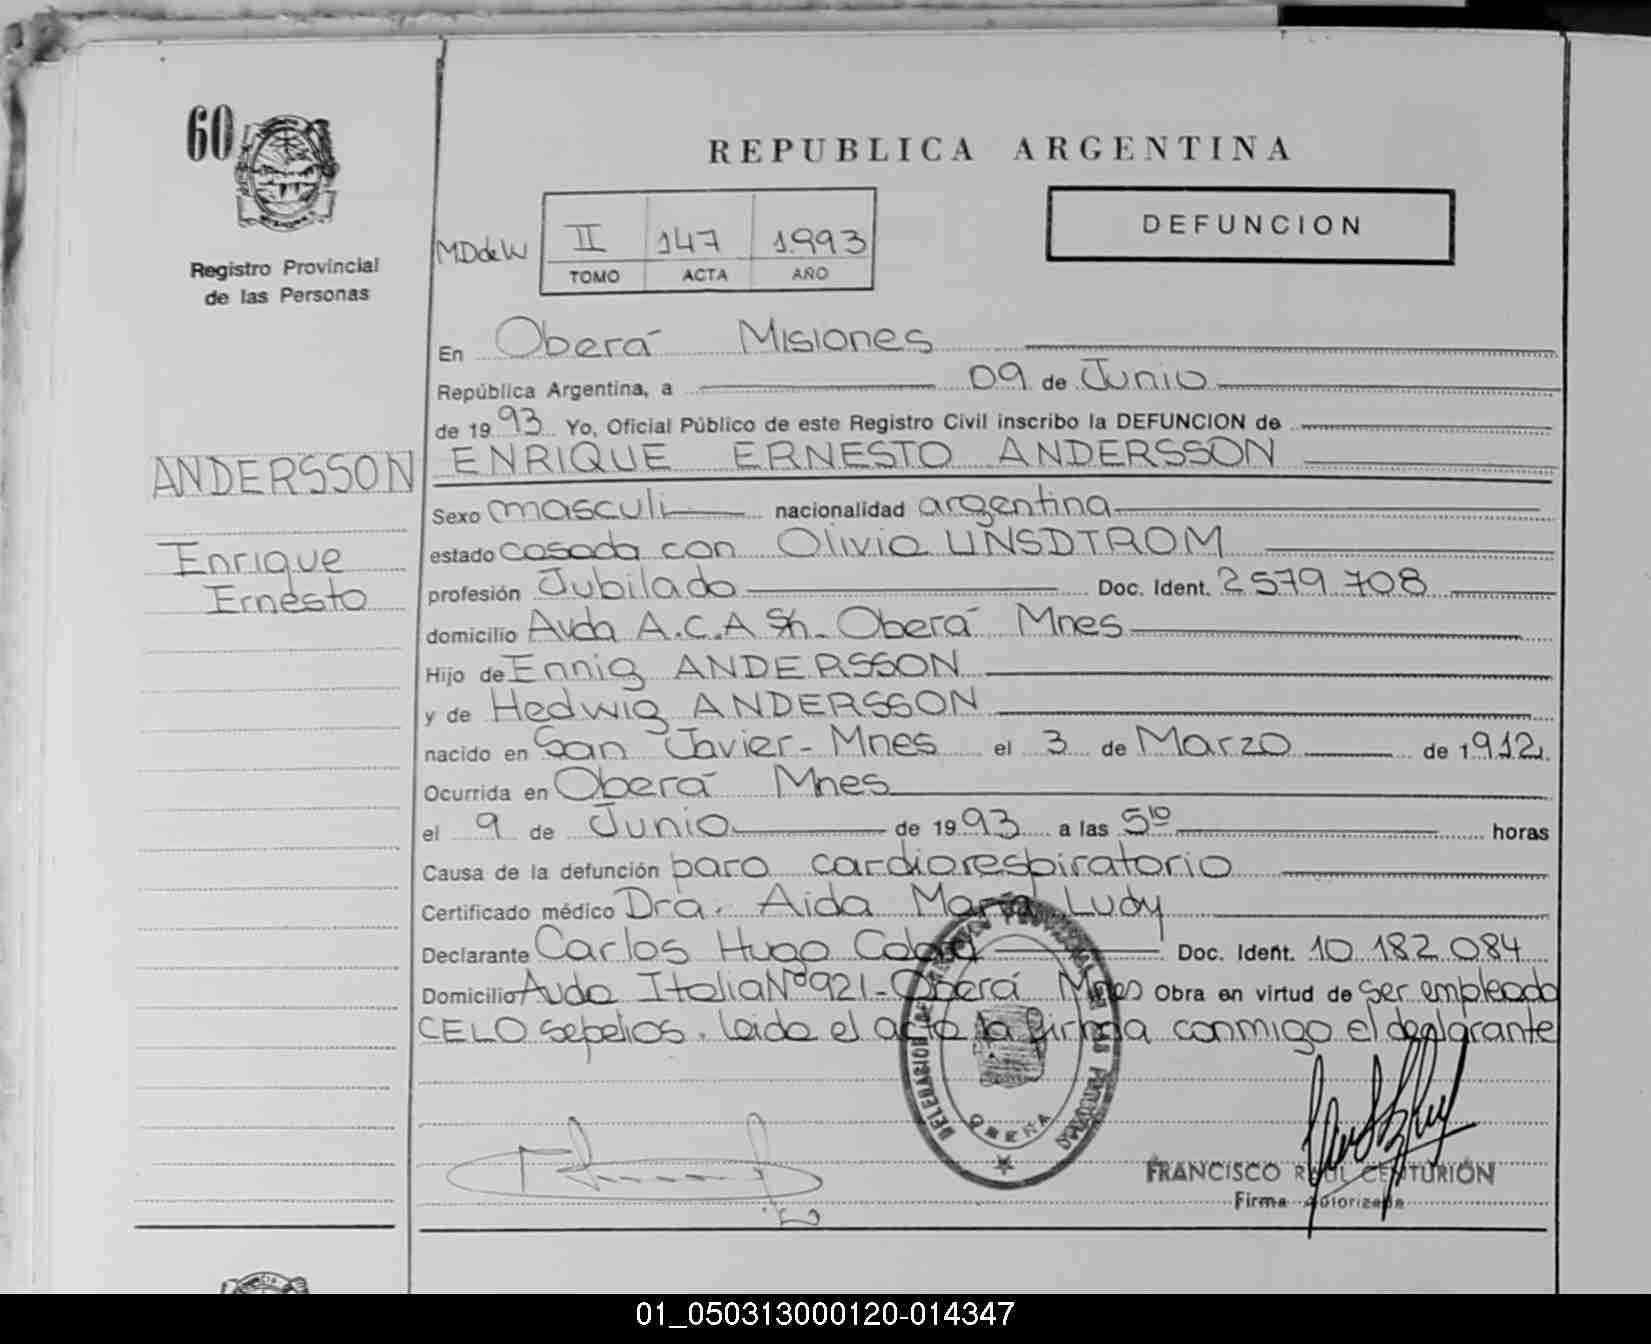 60
Registro Provincial
de las Personas
REPUBLICA ARGENTINA
MDdeW II 147 1993
TOMO ACTA AÑO
DEFUNCION
En Oberá Misiones
República Argentina, a 09 de Junio
de 1993 Yo, Oficial Público de este Registro Civil inscribo la DEFUNCION de
ANDERSSON ENRIQUE ERNESTO ANDERSSON
Enrique
Ernesto
Sexo masculi nacionalidad argentina
estado casada con Olivia UNSDTROM
profesión Jubilado Doc. Ident. 2579.708
domicilio Avda A.C.A S/n. Oberá Mnes
Hijo de Ennig ANDERSSON
y de Hedwig ANDERSSON
nacido en San Javier - Mnes el 3 de Marzo de 1912
Ocurrida en Oberá Mnes
el 9 de Junio de 1993 a las 5 10 horas
Causa de la defunción paro cardiorespiratorio
Certificado médico Dra. Aida María Ludy
Declarante Carlos Hugo Doc. Ident. 10.182.084
Domicilio Avda Italia Nº 921 - Oberá Mnes Obra en virtud de ser empleado
CELO sepelios. leida el acta la firma conmigo el declarante
OBERA
FRANCISCO RAUL CENTURIÓN
Firma Autorizada
01_050313000120-014347